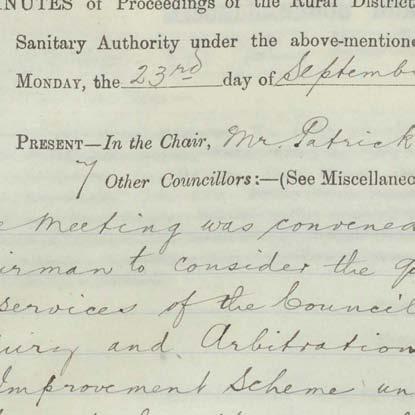 MINUTES of Proceedings of the Rural District
Sanitary Authority under the above-mentione
MONDAY, the 23rd day of Septembe
PRESENT—In the Chair, Mr. Patrick
7 Other Councillors:—(See Miscellanec
e Meeting was convened
airman to consider the
services of the Council
uiry and Arbitration
Improvement Scheme un